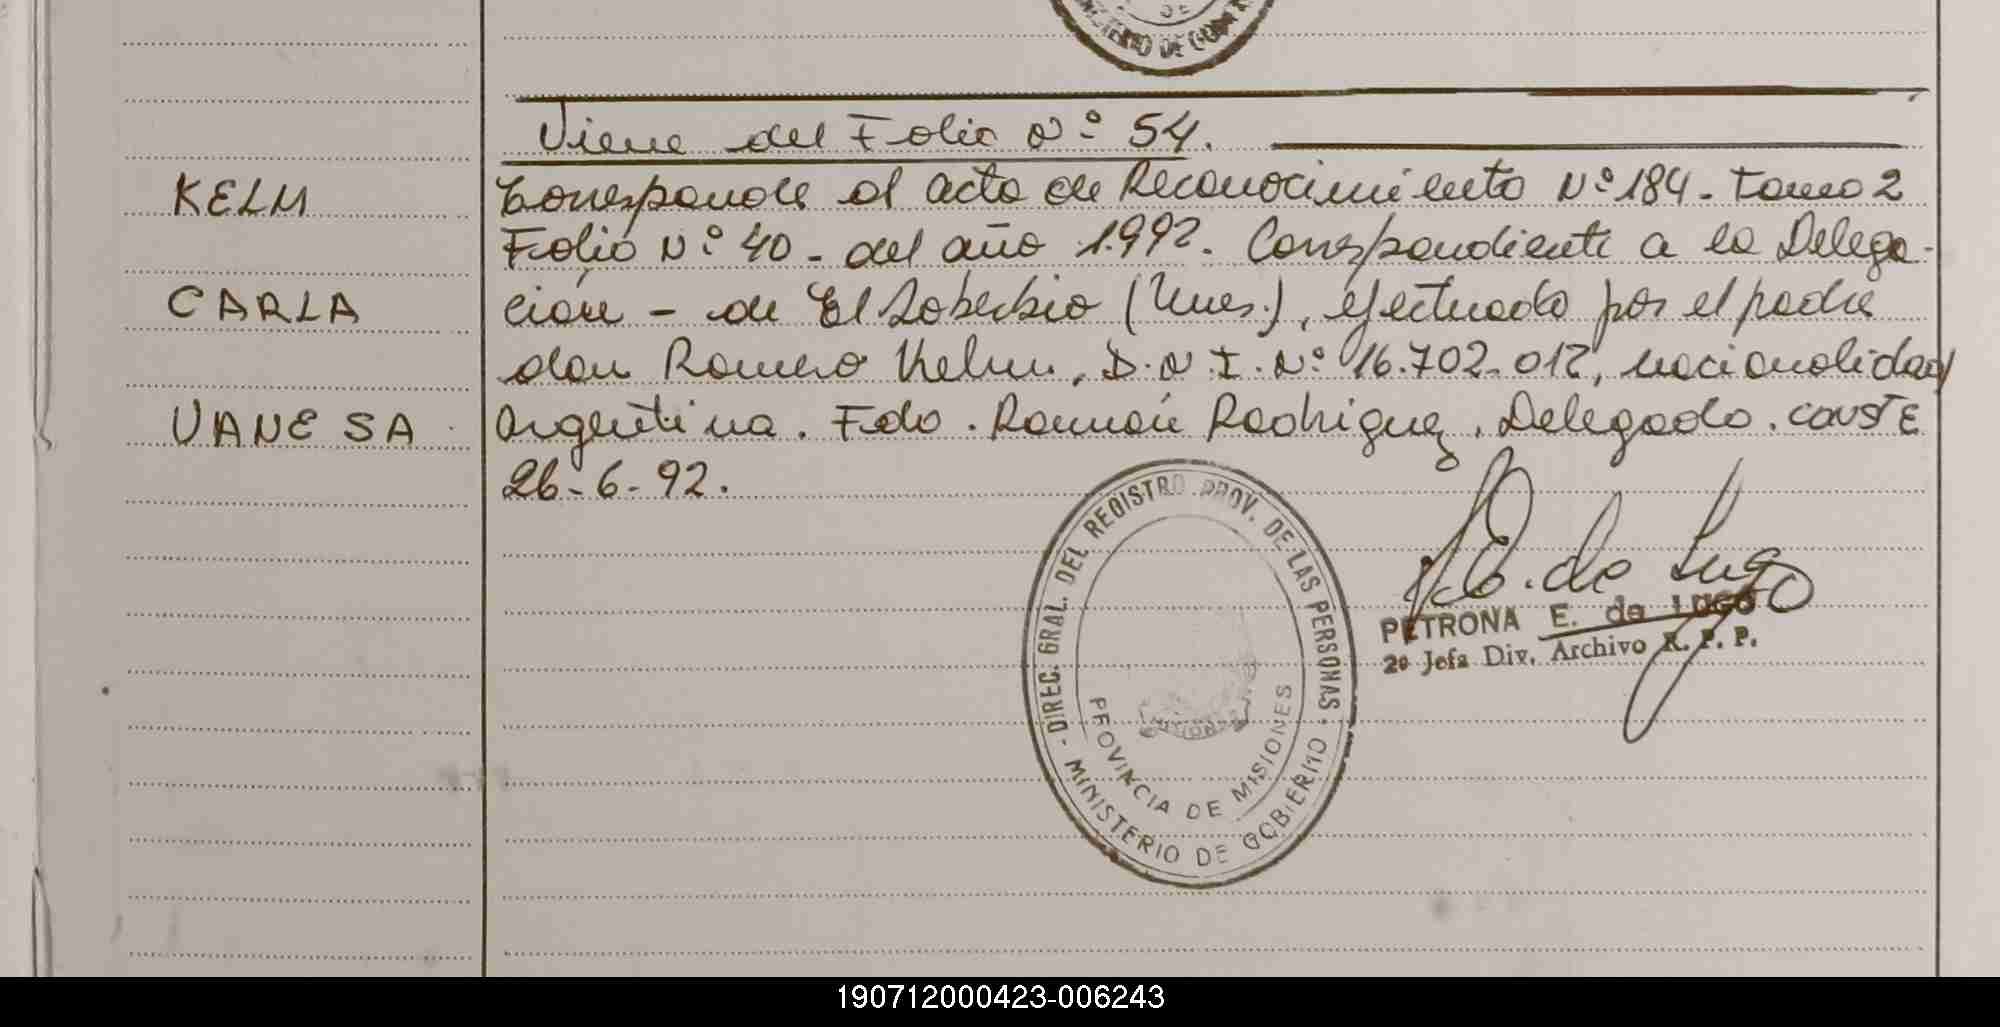 MINISTERIO DE GOBIERNO
DE
Viene del Folio Nº 54.
KELM
Corresponde al acta de Reconocimiento Nº 184 - Tomo 2
Folio Nº 40 - del año 1.992. Correspondiente a la Delega-
CARLA
ción - de El Soberbio (Mnes.), efectuado por el padre
don Romero Kelm, D.N.I. Nº 16.702.012, nacionalidad
VANESA
Argentina. Fdo. Ramón Rodriguez. Delegado. CONSTE
26-6-92.
DIREC. GRAL. DEL REGISTRO PROV. DE LAS PERSONAS
MISIONES
PROVINCIA DE MISIONES
MINISTERIO DE GOBIERNO
P.E. de Lugo
PETRONA E. de LUGO
2º Jefa Div. Archivo R. P. P.
190712000423-006243